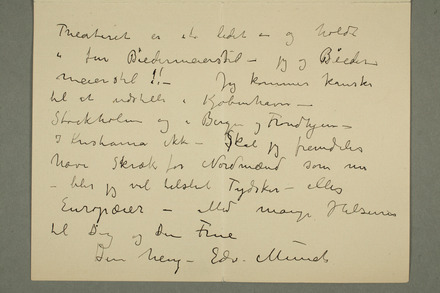 Theateret er ste ledet en og holdt
i fin Biedermeierstil – jeg og Bieder-
meierstil !! – Jeg kommer kanske
til at udstille i Kjøbenhavn –
Stockholm og i Bergen og Trondhjem –
I Kristiania ikke – Skal jeg fremdeles
have Skræk for Nordmænd som nu
– blir jeg vel tilslut Tydsker – eller
Europæer – Med mange Hilsener
til Dig og Din Frue
Din heng. Edv. Munch